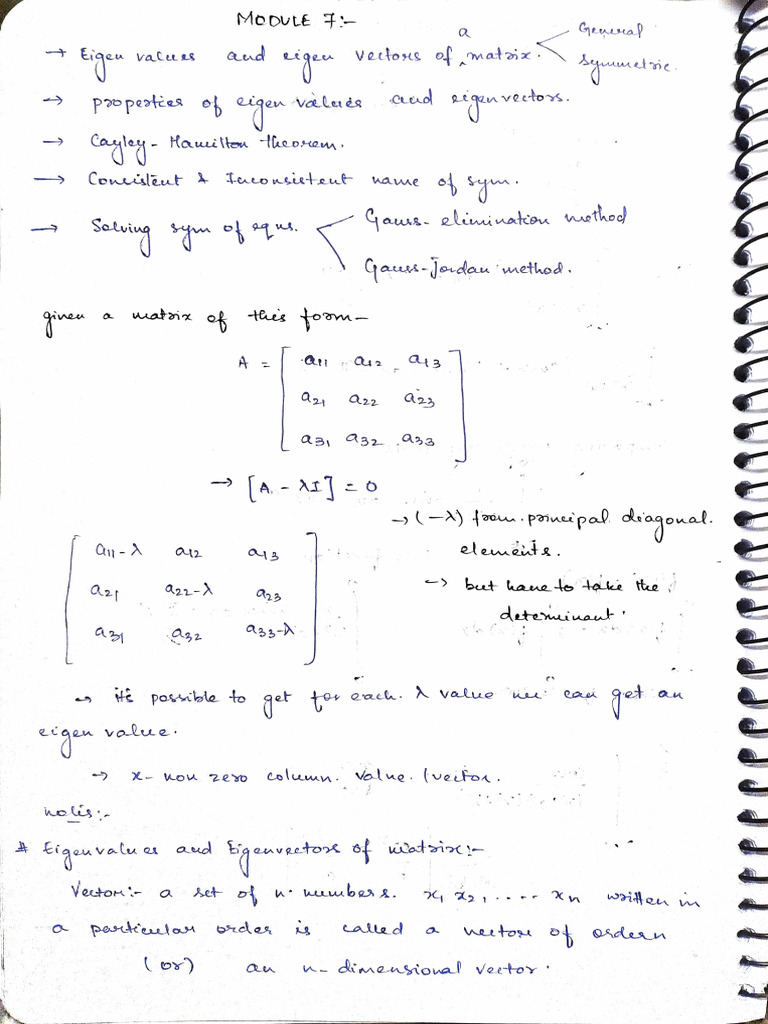 MODULE 7:-
→ Eigen values and eigen vectors of a matrix. General
Symmetric.
→ properties of eigen values and eigenvectors.
→ Cayley-Hamilton theorem.
→ Consistent & Inconsistent name of sym.
→ Solving sym of eqns. Gauss-elimination method
Gauss-Jordan method.
given a matrix of this form-
A = [ a11 a12 a13
a21 a22 a23
a31 a32 a33 ]
→ [A - λI] = 0
→ (-λ) from principal diagonal
elements.
→ but have to take the
determinant.
[ a11-λ a12 a13
a21 a22-λ a23
a31 a32 a33-λ ]
→ it's possible to get for each λ value we can get an
eigen value.
→ x- non zero column. value. (vector.
notes:-
# Eigenvalues and Eigenvectors of matrix:-
Vector:- a set of n. numbers. x1 x2, .... xn written in
a particular order is called a vector of ordern
(or) an n-dimensional vector.